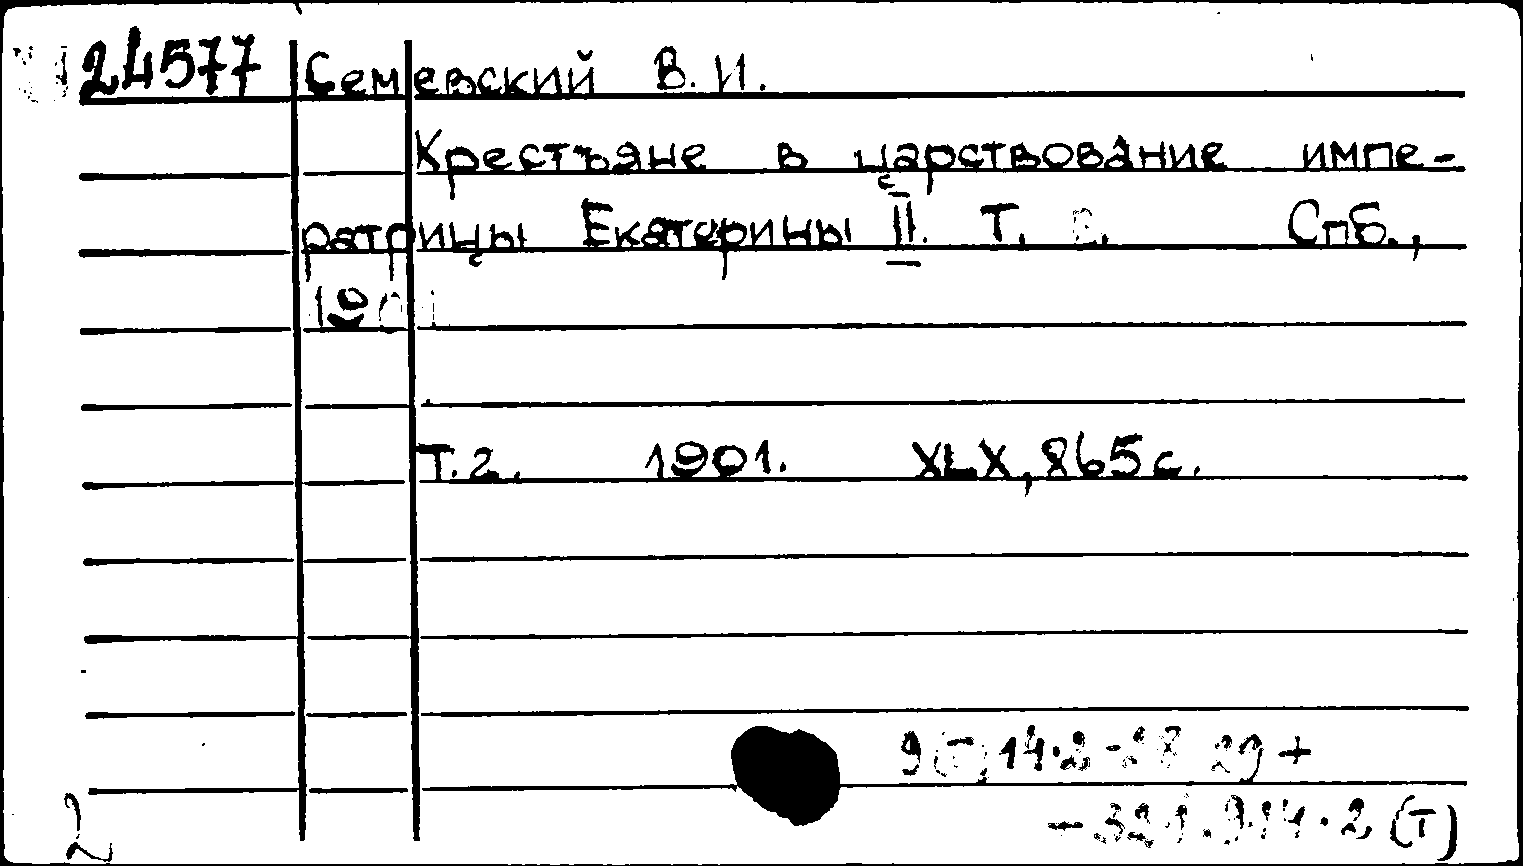 24577 Семевский В. И.
Крестьяне в царствование импе-
ратрицы Екатерины II. Т. Спб.,
Т. 2. 1901. XLX, 865 с.
29 +
2